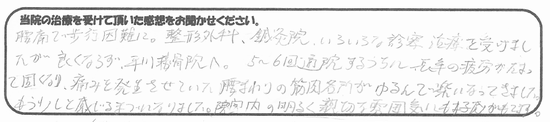 当院の治療を受けて頂いた感想をお聞かせください。
腰痛で歩行困難に。整形外科、鍼灸院、いろいろな診察治療を受けまし
たが良くならず、平川接骨院へ。5〜6回通院するうちに長年の疲労がたまっ
て固くなり、痛みを発生させていた腰まわりの筋肉各所がゆるんで楽になってきました。
もう少しと感じるまでになりました。院内の明るく親切な雰囲気に